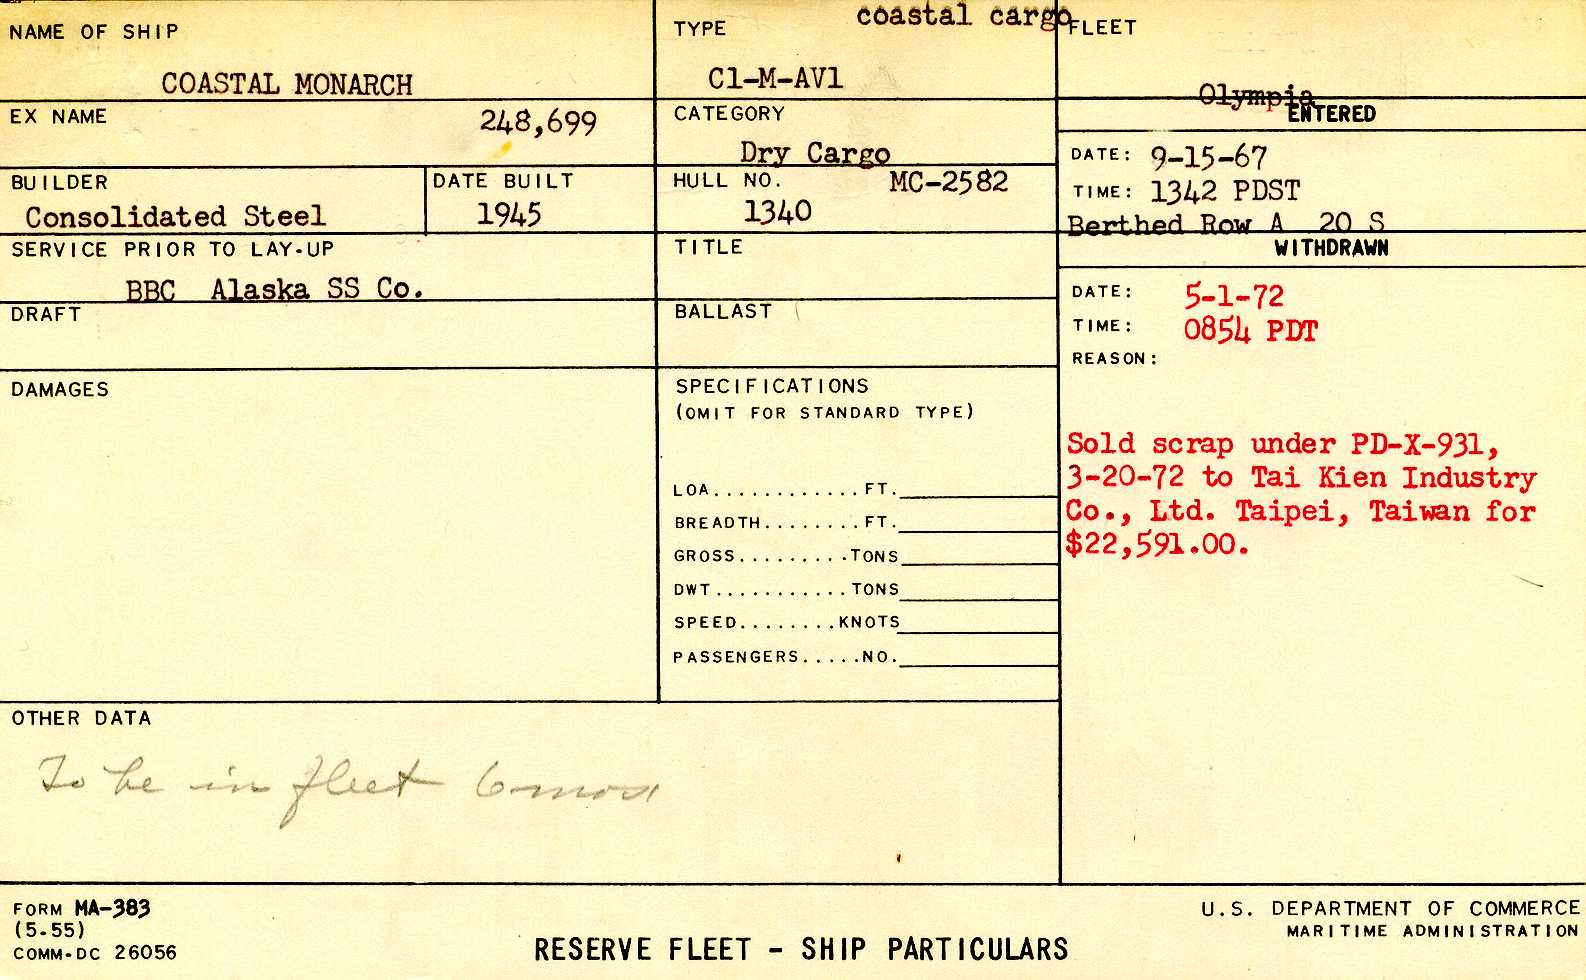 NAME OF SHIP
COASTAL MONARCH
TYPE
coastal cargo
C1-M-AV1
FLEET
Olympia
EX NAME
248,699
CATEGORY
Dry Cargo
ENTERED
DATE: 9-15-67
TIME: 1342 PDST
Berthed Row A 20 S
BUILDER
Consolidated Steel
DATE BUILT
1945
HULL NO. MC-2582
1340
SERVICE PRIOR TO LAY-UP
BBC Alaska SS Co.
TITLE
WITHDRAWN
DATE: 5-1-72
TIME: 0854 PDT
REASON:
Sold scrap under PD-X-931,
3-20-72 to Tai Kien Industry
Co., Ltd. Taipei, Taiwan for
$22,591.00.
DRAFT
BALLAST
DAMAGES
SPECIFICATIONS
(OMIT FOR STANDARD TYPE)
LOA............FT.
BREADTH........FT.
GROSS.........TONS
DWT...........TONS
SPEED........KNOTS
PASSENGERS.....NO.
OTHER DATA
To be in fleet 6 mos.
FORM MA-383
(5-55)
COMM-DC 26056
RESERVE FLEET - SHIP PARTICULARS
U.S. DEPARTMENT OF COMMERCE
MARITIME ADMINISTRATION